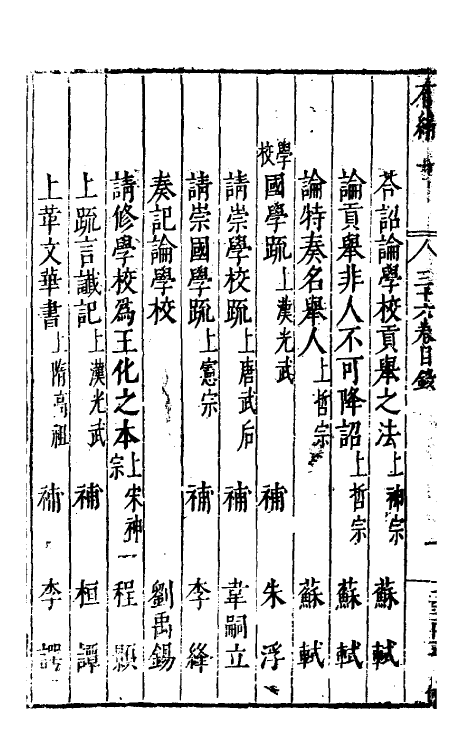 三十六卷目錄
荅詔論學校貢舉之法 上神宗 蘇軾
論貢舉非人不可降詔 上哲宗 蘇軾
論特奏名舉人 上哲宗 蘇軾
學校 國學疏 上漢光武 補 朱浮
請崇學校疏 上唐武后 補 韋嗣立
請崇國學疏 上憲宗 補 李絳
奏記論學校 劉禹錫
請修學校爲王化之本 上宋神宗 程顥
上疏言讖記 上漢光武 補 桓譚
上革文華書 上隋高祖 補 李諤